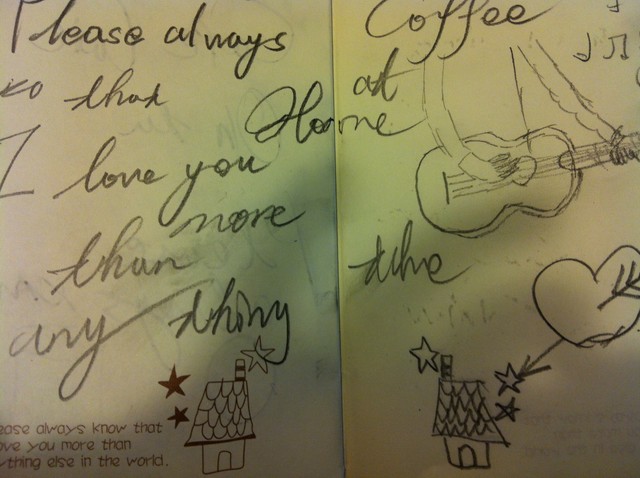 Please always
ko that
I love you
more
than
any thing
ease always know that
ove you more than
ything else in the world.
Coffee
at
Home
the